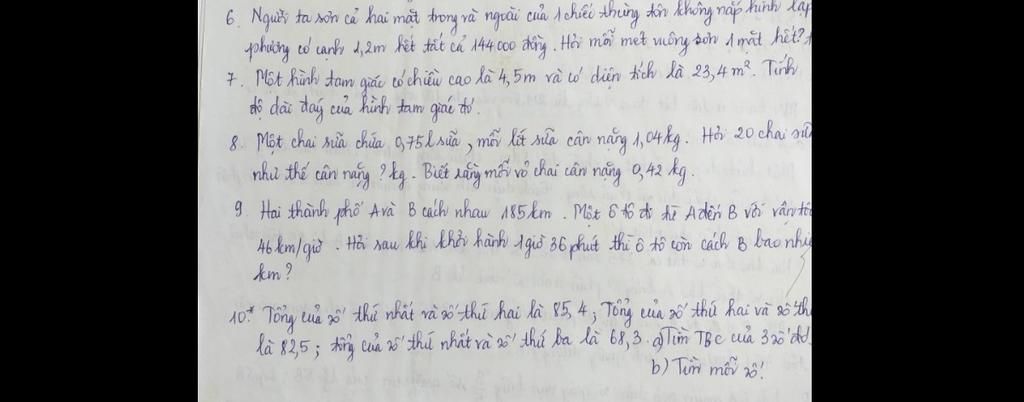 6. Người ta sơn cả hai mặt trong và ngoài của 1 chiếc thùng tôn không nắp hình lập
phương có cạnh 1,2m hết tất cả 144 000 đồng. Hỏi mỗi mét vuông sơn 1 mặt hết?
7. Một hình tam giác có chiều cao là 4,5m và có diện tích là 23,4 m². Tính
độ dài đáy của hình tam giác đó.
8. Một chai sữa chứa 0,75l sữa, mỗi lít sữa cân nặng 1,04kg. Hỏi 20 chai sữa
như thế cân nặng ? kg. Biết rằng mỗi vỏ chai cân nặng 0,42 kg.
9. Hai thành phố A và B cách nhau 185km. Một ô tô đi từ A đến B với vận
46 km/giờ. Hỏi sau khi khởi hành 1 giờ 36 phút thì ô tô còn cách B bao
km?
10.* Tổng của số thứ nhất và số thứ hai là 85,4; Tổng của số thứ hai và số
là 82,5; tổng của số thứ nhất và số thứ ba là 68,3. a) Tìm TBC của 3 số đó.
b) Tìm mỗi số.